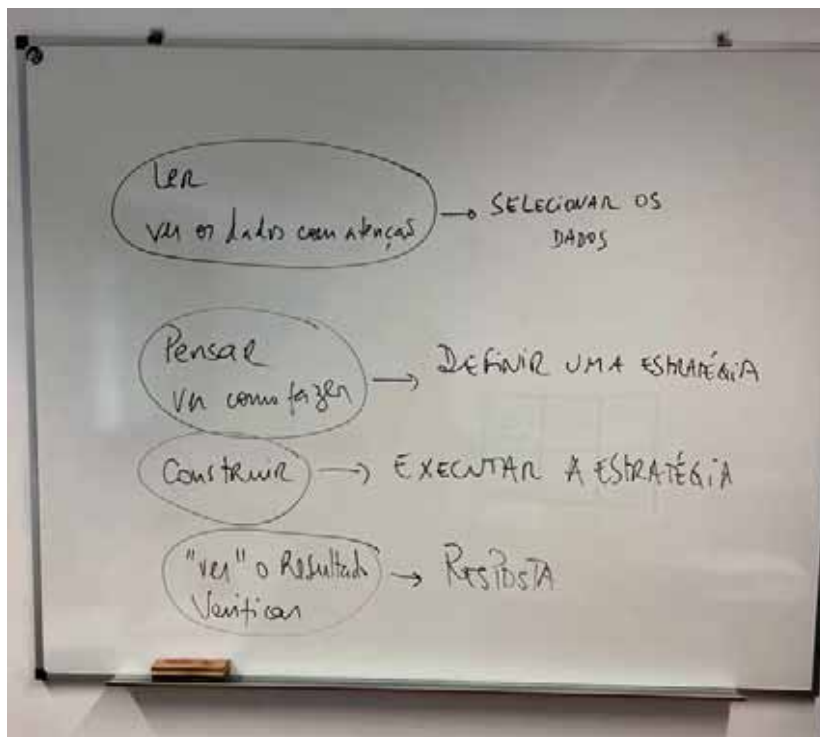 Ler
ver os dados com atenção → SELECIONAR OS
DADOS
Pensar
ver como fazer → DEFINIR UMA ESTRATÉGIA
Construir → EXECUTAR A ESTRATÉGIA
"ver" o Resultado → RESPOSTA
Verificar